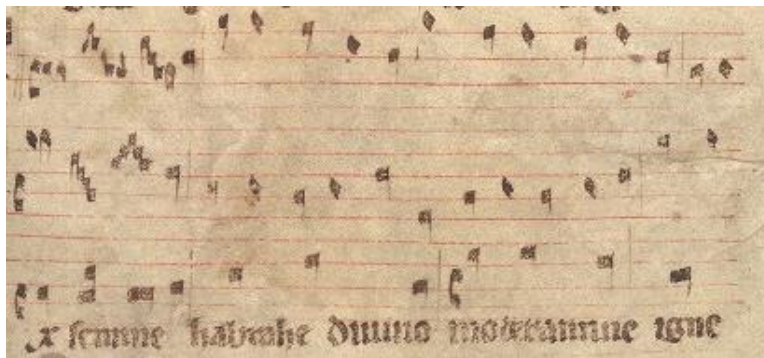 x semine habrahe diuino moderamine igne